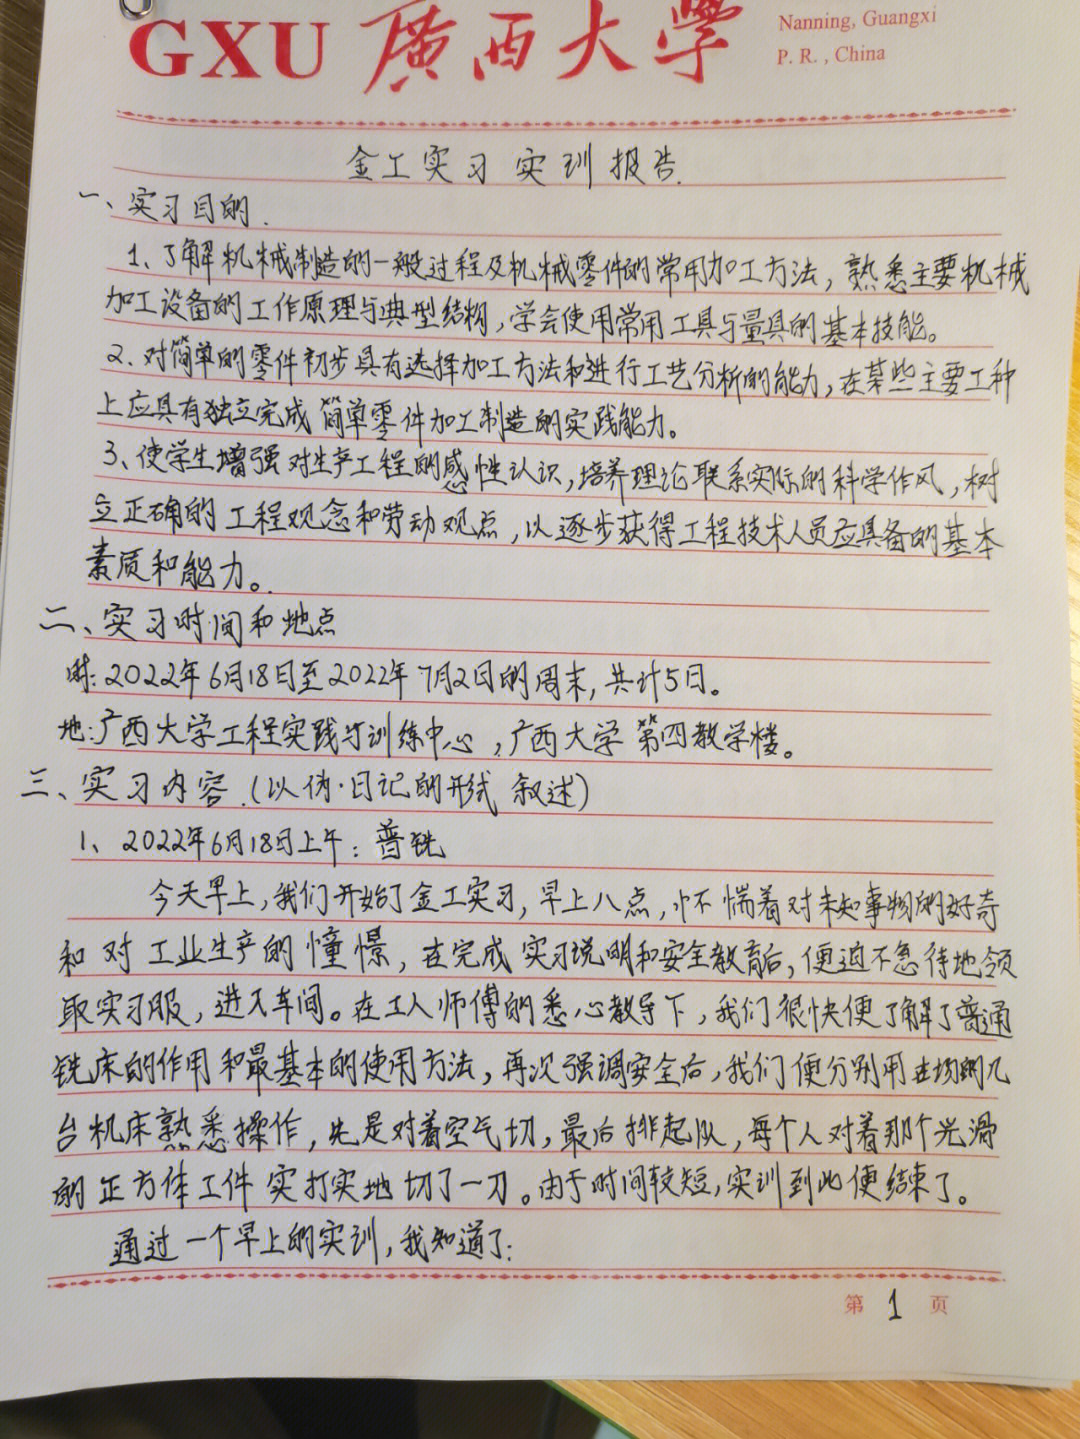 GXU 廣西大學 Nanning, Guangxi
P. R. , China
金工实习 实训报告.
一、实习目的.
1、了解机械制造的一般过程及机械零件的常用加工方法,熟悉主要机械
加工设备的工作原理与典型结构,学会使用常用工具与量具的基本技能。
2、对简单的零件初步具有选择加工方法和进行工艺分析的能力,在某些主要工种
上应具有独立完成简单零件加工制造的实践能力。
3、使学生增强对生产工程的感性认识,培养理论联系实际的科学作风,树
立正确的工程观念和劳动观点,以逐步获得工程技术人员应具备的基本
素质和能力。
二、实习时间和地点
时:2022年6月18日至2022年7月2日的周末,共计5日。
地:广西大学工程实践与训练中心,广西大学第四教学楼。
三、实习内容.(以伪·日记的形式 叙述)
1、2022年6月18日上午:普铣
今天早上,我们开始了金工实习,早上八点,怀惴着对未知事物的好奇
和对工业生产的憧憬,在完成实习说明和安全教育后,便迫不急待地领
取实习服,进入车间。在工人师傅的悉心教导下,我们很快便了解了普通
铣床的作用和最基本的使用方法,再次强调安全后,我们便分别用在场的几
台机床熟悉操作,先是对着空气切,最后排起队,每个人对着那个光滑
的正方体工件实打实地切了一刀。由于时间较短,实训到此便结束了。
通过一个早上的实训,我知道了:
第 1 页